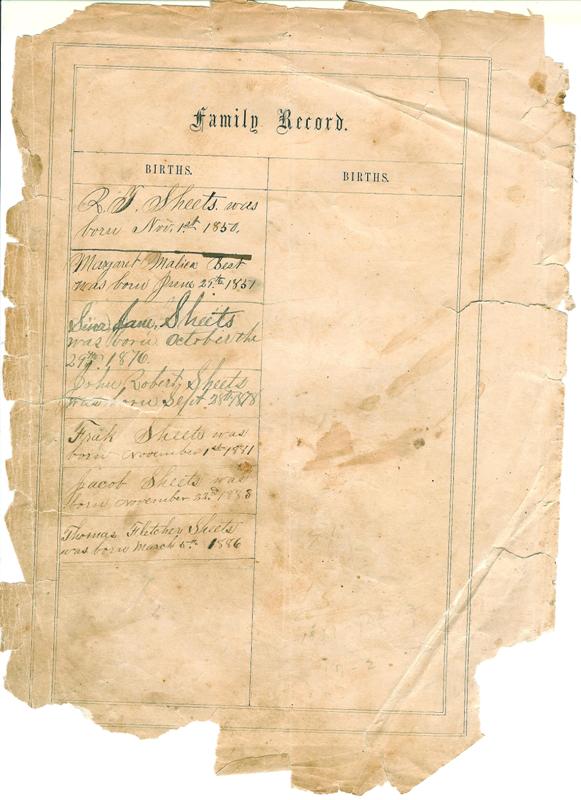 Family Record.
BIRTHS.
R. T. Sheets was
born Nov. 1st 1850.
Margaret Best
was born June 29th 1851
Jane Sheets
was born October the
29th 1876
John Robert Sheets
was born Sept 28th 1878
Frak Sheets was
born November 1st 1881
Jacob Sheets was
born November 1883
Thomas Fletcher Sheets
was born March 5th 1886
BIRTHS.